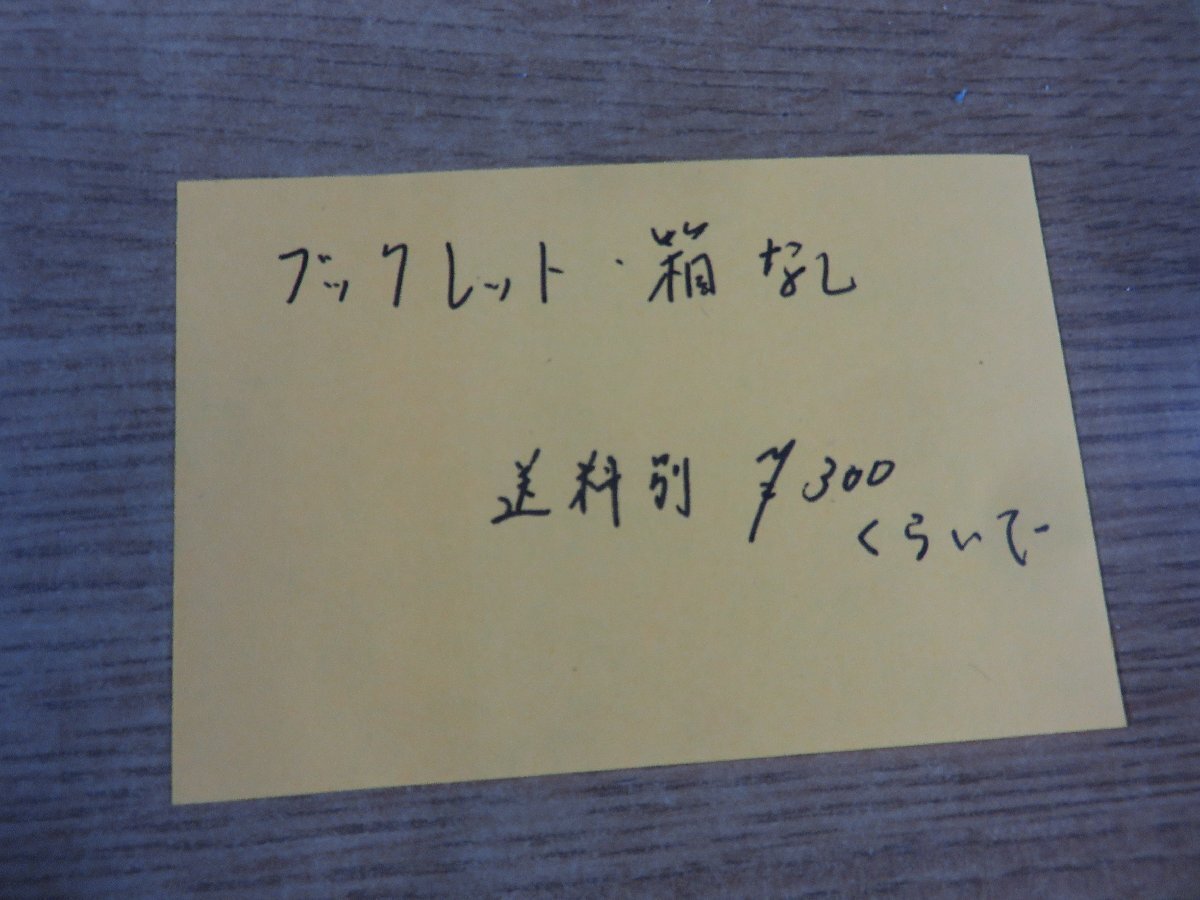 ブックレット・箱なし
送料別 ¥300
くらいで